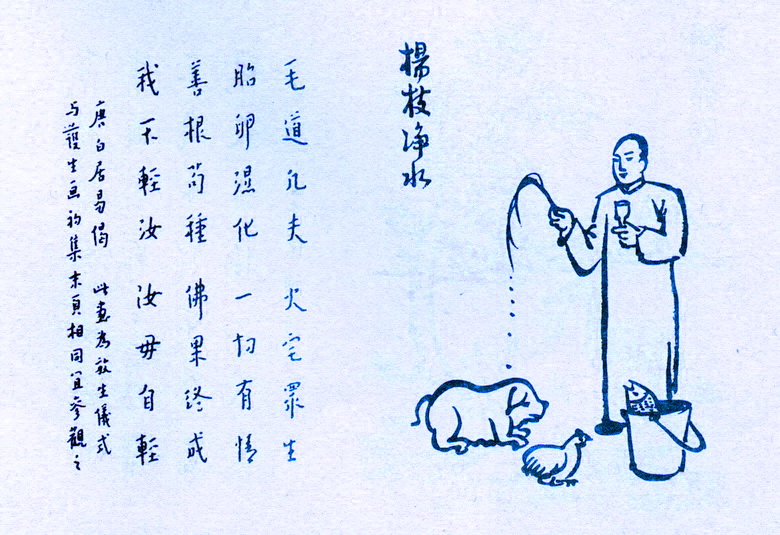 楊枝净水
毛道凡夫 火宅眾生
胎卵濕化 一切有情
善根苟種 佛果終成
我不輕汝 汝毋自輕
唐白居易偈 此畫為放生儀式
与護生画初集末頁相同宜参觀之